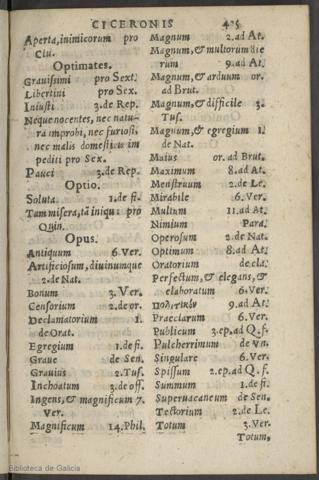 CICERONIS 425
Aperta, inimicorum pro
Clu.
Optimates.
Gravissimi pro Sext.
Libertini pro Sex.
Iniusti 3.de Rep.
Neque nocentes, nec natu-
ra improbi, nec furiosi,
nec malis domesticis im
pediti pro Sex.
Pauci 3.de Rep.
Optio.
Soluta. 1.de fi.
Tam misera, tã iniqua pro
Quin.
Opus.
Antiquum 6.Ver.
Artificiosum, divinumque
2.de Nat.
Bonum 3.Ver.
Censorium 2.de or.
Declamatorium 1.
de Orat.
Egregium 1.de fi.
Grave de Sen.
Gravius 2.Tus.
Inchoatum 3.de off.
Ingens, & magnificum 7.
Ver.
Magnificum 14.Phil.
Magnum 2.ad At.
Magnum, & multorum die
rum 9.ad At.
Magnum, & arduum or.
ad Brut.
Magnum, & difficile 3.
Tus.
Magnum, & egregium 1.
de Nat.
Maius or.ad Brut.
Maximum 8.ad At.
Menstruum 2.de Le.
Mirabile 6.Ver.
Multum 11.ad At.
Nimium Para.
Operosum 2.de Nat.
Optimum 8.ad At.
Oratorium de cla.
Perfectum, & elegans, &
elaboratum 6.Ver.
πολιτικὸν 9.ad At.
Praeclarum 6.Ver.
Publicum 3.ep.ad Q.f.
Pulcherrimum de Vn.
Singulare 6.Ver.
Spissum 2.ep.ad Q.f.
Summum 1.de fi.
Supervacaneum de Sen.
Tectorium 2.de Le.
Totum 3.Ver.
Totum,
Biblioteca de Galicia